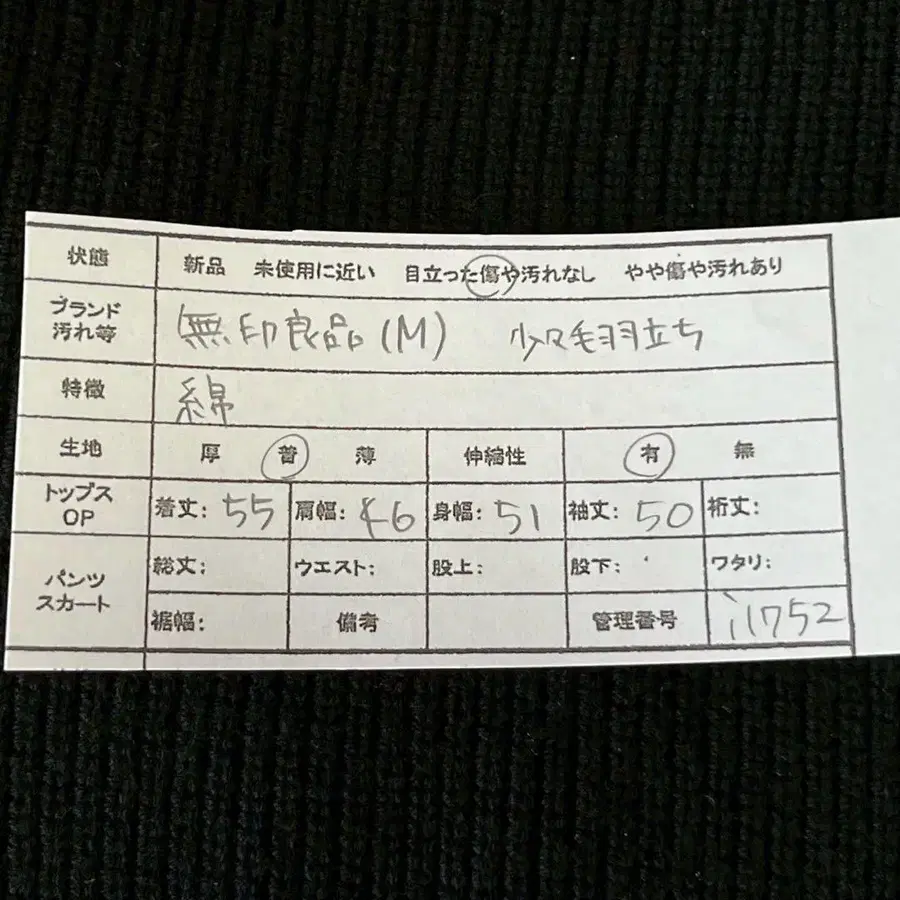 状態 新品 未使用に近い 目立った傷や汚れなし やや傷や汚れあり
ブランド
汚れ等 無印良品(M) 少々毛羽立ち
特徴 綿
生地 厚 普 薄 伸縮性 有 無
トップス
OP 着丈: 55 肩幅: 46 身幅: 51 袖丈: 50 裄丈:
パンツ
スカート 総丈: ウエスト: 股上: 股下: ワタリ:
裾幅: 備考 管理番号 i1752